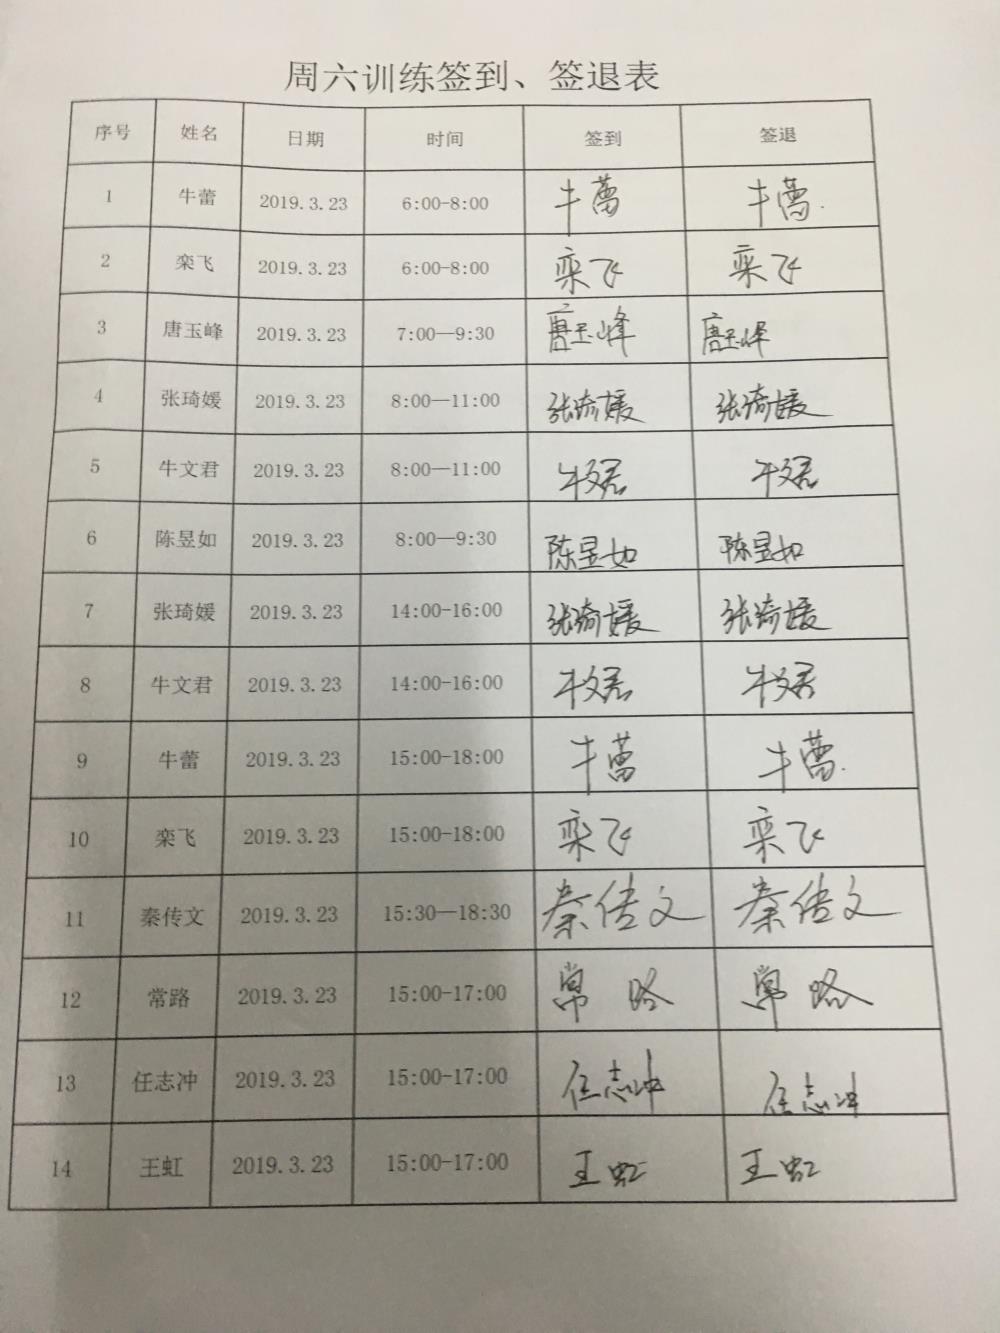 周六训练签到、签退表
序号 姓名 日期 时间 签到 签退
1 牛蕾 2019.3.23 6:00-8:00 牛蕾 牛蕾.
2 栾飞 2019.3.23 6:00-8:00 栾飞 栾飞
3 唐玉峰 2019.3.23 7:00—9:30 唐玉峰 唐玉峰
4 张琦媛 2019.3.23 8:00—11:00 张琦媛 张琦媛
5 牛文君 2019.3.23 8:00—11:00 牛文君 牛文君
6 陈昱如 2019.3.23 8:00—9:30 陈昱如 陈昱如
7 张琦媛 2019.3.23 14:00-16:00 张琦媛 张琦媛
8 牛文君 2019.3.23 14:00-16:00 牛文君 牛文君
9 牛蕾 2019.3.23 15:00-18:00 牛蕾 牛蕾.
10 栾飞 2019.3.23 15:00-18:00 栾飞 栾飞
11 秦传文 2019.3.23 15:30—18:30 秦传文 秦传文
12 常路 2019.3.23 15:00-17:00 常路 常路
13 任志冲 2019.3.23 15:00-17:00 任志冲 任志冲
14 王虹 2019.3.23 15:00-17:00 王虹 王虹